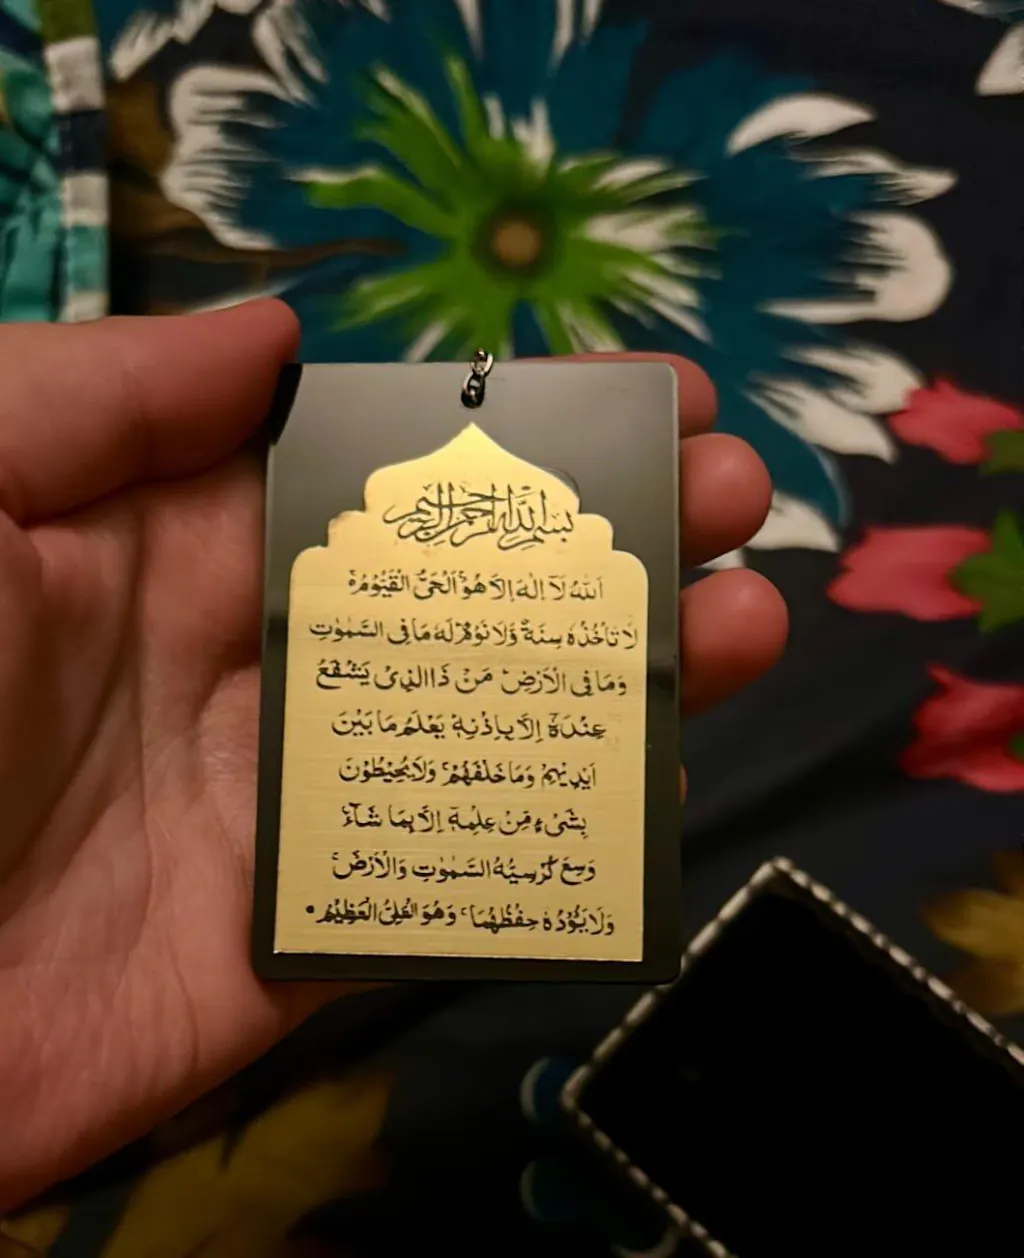 بسم الله الرحمن الرحيم
اَللهُ لَآ اِلٰهَ اِلَّا هُوَ ۚ اَلْحَيُّ الْقَيُّوْمُ ۚ
لَا تَاْخُذُهٗ سِنَةٌ وَّلَا نَوْمٌ ؕ لَهٗ مَا فِى السَّمٰوٰتِ
وَمَا فِى الْاَرْضِ ؕ مَنْ ذَا الَّذِىْ يَشْفَعُ
عِنْدَهٗٓ اِلَّا بِاِذْنِهٖ ؕ يَعْلَمُ مَا بَيْنَ
اَيْدِيْهِمْ وَمَا خَلْفَهُمْ ۚ وَلَا يُحِيْطُوْنَ
بِشَىْءٍ مِّنْ عِلْمِهٖٓ اِلَّا بِمَا شَآءَ ۚ
وَسِعَ كُرْسِيُّهُ السَّمٰوٰتِ وَالْاَرْضَ ۚ
وَلَا يَئُوْدُهٗ حِفْظُهُمَا ۚ وَهُوَ الْعَلِىُّ الْعَظِيْمُ •